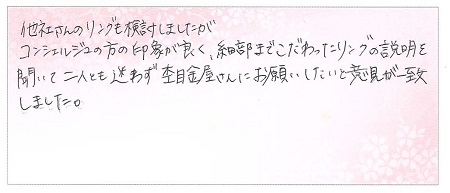 他社さんのリングも検討しましたが
コンシェルジュの方の印象が良く、細部までこだわったリングの説明を
聞いて二人とも迷わず杢目金屋さんにお願いしたいと意見が一致
しました。